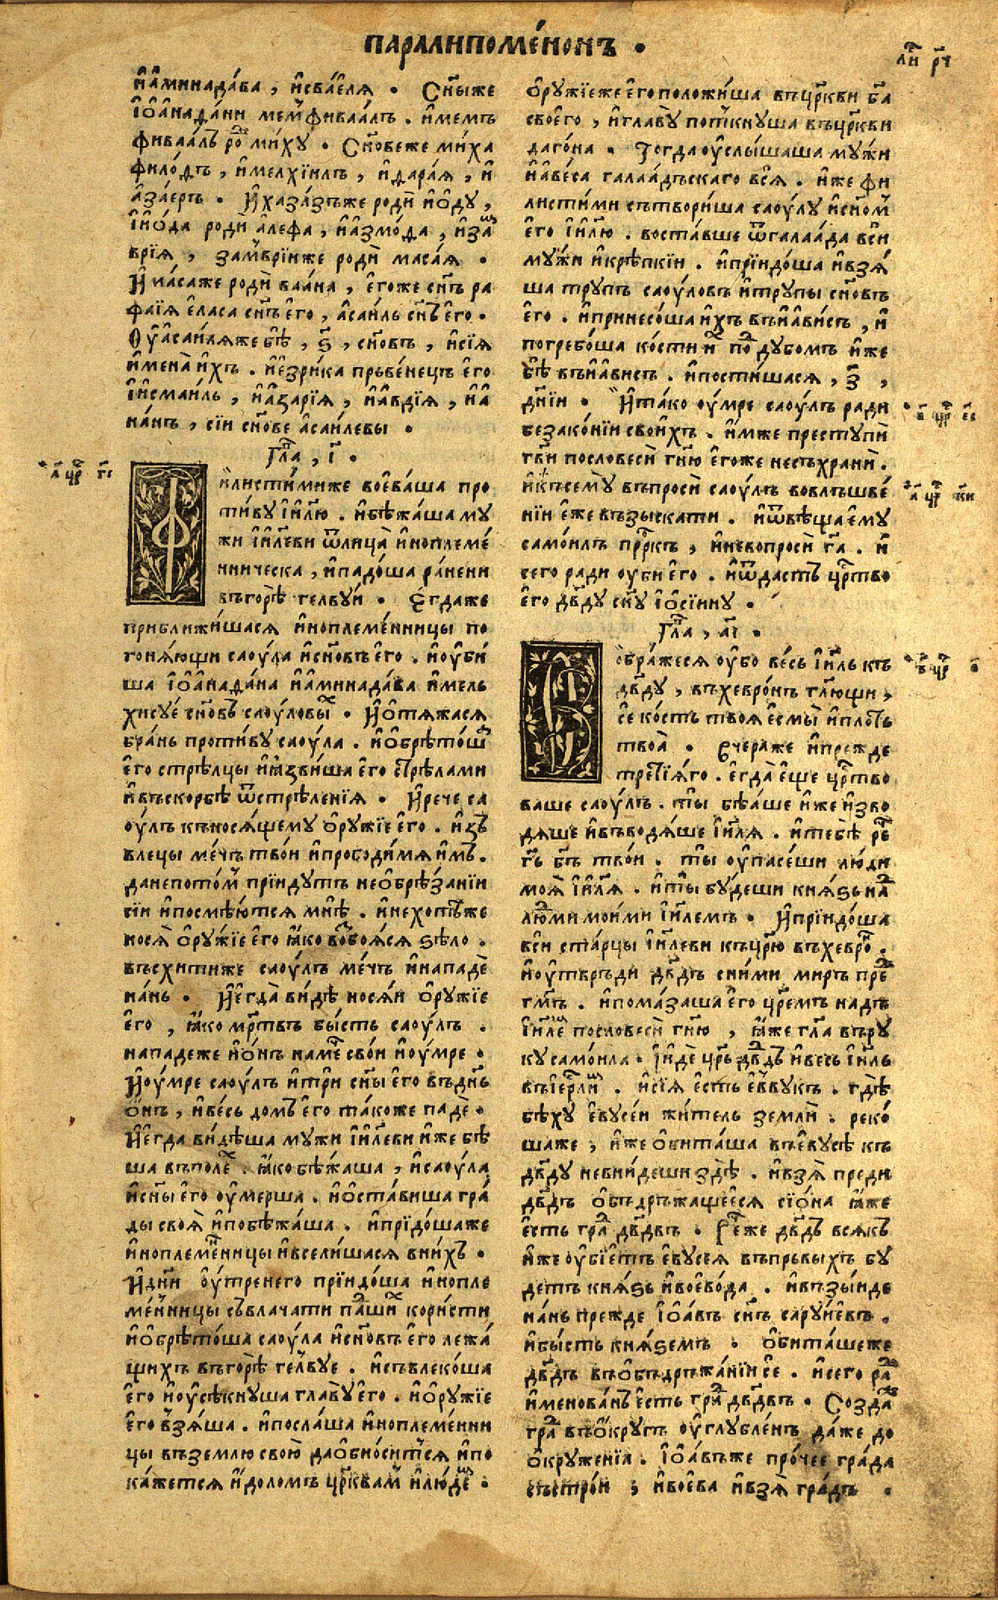 паралипоме́нонъ .
ли́ рч
и҆а҆минада́ва , и҆сваѐлѧ . Сн҃ыже
і҆ѡ҆анада́ни меⷨфиваа́лъ . и҆мемъ
фиваа́лъ роⷣ ми́ху . Сн҃овеже ми́ха
фило́дъ , и҆мелхїи́лъ , и҆дара́ѧ , и҆
а҆за́еръ . И҆хаза́зъже родѝ и҆о́ду ,
і҆и҆о́да родѝ а҆ле́фа , и҆а҆змо́да , и҆заⷨ
врі́ѧ , замⷡ҇врі́иже родѝ маса́ѧ .
И҆ма́саже родѝ ваа́на , є҆го́же сн҃ъ ра
фаі́ѧ є҆ла́са сн҃ъ є҆го̀ , а҆саи́ль сн҃ъ є҆го̀ .
Оу҆а҆саи́лѧже бѣ̀ , ѕ҃ , сн҃овъ , и҆сїѧ̀
и҆мена̀ и҆́хъ . и҆езри́ка прьве́нецъ є҆го̀
і҆и҆сма́иль , и҆а҆за́рїѧ , и҆а҆вді́ѧ , и҆а҆
на́нъ , сїѝ сн҃ове а҆саи́левы .
Гл҃а , і҃ .
а҃ црⷭ҇ гі
Фили́стимиже воєва́ша про
ти́ву і҆и҃лю . и҆бѣжа́ша му
жи і҆и҃леви ѿлица̀ и҆ноплеме́
нническа , и҆падо́ша ра́нени
въгорѣ̀ гелву́и . Є҆гда́же
прибли́жишасѧ и҆ноплеме́нницы по
гонѧ́юще саоу́ла и҆сн҃овъ є҆го̀ . и҆оу҆би́
ша і҆ѡ҆анада́на и҆а҆минада́ва и҆мель
хисуѐ сн҃овъ саоу́ловыⷯ . И҆ѡ҆тѧжа́сѧ
бра́нь проти́ву саоу́ла . и҆ѡ҆брѣто́ш
є҆го̀ стрѣ́лцы и҆ꙗ҆зви́ша є҆го̀ стрѣ́лами
и҆въскорбѣ̀ ѿстрѣле́нїѧ . И҆рече са
оу́лъ къносѧ́щему ѻ҆ру́жїе є҆го̀ . и҆зъ
влецы ме́чь тво́и и҆прободи́мѧ и҆мъ .
данепото́мⷨ прїи́дутъ неѡ҆брѣ́занїи
сїи и҆посмѣю́тсѧ мнѣ̀ . и҆нехотѣ́же
носѧ̀ ѻ҆ру́жїе є҆го̀ ꙗ҆́ко воⷥбоѧ́сѧ ѕѣло̀ .
въсхити́же саоу́лъ ме́чь и҆нападѐ
на́нь . И҆є҆гда̀ ви́дѣ носѧ́и ѻ҆ру́жїе
є҆го̀ , ꙗ҆́ко мрⷮвъ бы́сть саоу́лъ .
нападе́же и҆ѻ҆́нъ намеⷱ҇ сво́и и҆оу́мре .
И҆оу́мре саоу́лъ и҆три́ сн҃ы є҆го̀ въдн҃ь
ѻ҆́нъ , и҆ве́сь домъ̀ є҆го̀ та́коже падѐ .
И҆є҆гда̀ ви́дѣша му́жи і҆и҃леви и҆́же бѣ
ша въпо́леⷯ . ꙗ҆́ко бѣжа́ша , и҆саоу́ла
и҆сн҃ы є҆го̀ оу҆мерша . и҆ѡ҆ста́виша гра́
ды своѧ̀ и҆побѣжа́ша . и҆прїидо́шаже
и҆ноплеме́нницы и҆всели́шасѧ вни́хъ .
И҆дн҃ии оу҆́тренего прїидо́ша и҆нопле
ме́нницы съвлача́ти па́дшиⷯ кори́сти
и҆ѡ҆брѣто́ша саоу́ла и҆сн҃овъ є҆го̀ лежа́
щихъ въгорѣ̀ гелву́е . и҆съвлеко́ша
є҆го̀ и҆оу҆сѣ́кнуша главу̀ є҆го̀ . и҆ѻ҆ру́жїе
є҆го̀ взѧ́ша . и҆посла́ша и҆ноплеме́нни
цы въземлю своѝю даѡ҆бно́ситсѧ и҆по
ка́жетсѧ и҆́доломъ цр҃квамⷨ и҆лю́деⷨ .
ѻ҆ру́жїеже є҆го̀ положи́ша въцр҃кви б҃а
своего̀ , и҆главу̀ поткну́ша въцр҃кви
даго́на . Тогда̀ оу҆слы́шаша му́жи
и҆а҆ве́са галаа́дьскаго всѧ̀ . и҆́же фи
листи́ми сътвори́ша саоу́лу и҆сн҃омⷨ
є҆го̀ і҆и҃лю . воста́вше ѿгалаа́да всѝ
му́жи и҆крѣ́пкїи . и҆прїидо́ша и҆взѧ́
ша тру́пъ саоу́ловъ и҆тру́пы сн҃овъ
є҆го̀ . и҆принесо́ша и҆́хъ въи҆а҆ви́съ , и҆
погребо́ша ко́сти иⷯ поⷣ ду́бомъ и҆́же
бѣ̀ въи҆а҆ви́съ . и҆пости́шасѧ , з҃ ,
дн҃їи . И҆та́ко оу́мре саоу́лъ ради
в҃ црⷭ҇ єі
безако́нїи свои́хъ . и҆́мже преступѝ
гн҃и пословесѝ гн҃ю є҆го́же несъхранѝ .
и҆къ сему̀ въпросѝ саоу́лъ вовлъшве́
а҃ црⷭ҇ ки
нїи є҆же възыска́ти . и҆ѿвѣща̀ ему̀
самои́лъ прⷪ҇ркъ , и҆невопросѝ гⷭ҇а . и҆
сего̀ ради оубѝ є҆го̀ . и҆ѿда́стъ црⷭ҇тво
є҆го̀ дв҃ду сн҃у і҆ѡ҆сїи́ну .
Гл҃а , а҃і .
в҃ црⷭ҇
Събра́жесѧ оу҆бо весь і҆и҃ль къ
дв҃ду , въхевро́нъ гл҃ющи ,
сѐ ко́сть твоѧ̀ є҆смы̀ и҆пло́ть
твоа̀ . вчера́же и҆пре́жде
тре́тїѧго . є҆гда̀ є҆ще црⷭ҇тво
ваше саоу́лъ . ты̀ бѣа́ше и҆́же и҆зво
дѧ́ше и҆въводѧ́ше і҆и҃лѧ . и҆тебѣ̀ реⷱ҇
гⷭ҇ь б҃ъ тво́и . ты̀ оу҆пасе́ши лю́ди
моѧ̀ і҆и҃лѧ . и҆ты̀ бу́деши кнѧ́ѕь наⷣ
лю́дми мои́ми і҆и҃лемъ . И҆прїидо́ша
всѝ ста́рцы і҆и҃леви къцр҃ю въхевроⷩ .
и҆оу҆твръдѝ дв҃дъ сни́ми миръ преⷣ
гмⷭ҇ъ . и҆пома́заша є҆го̀ цр҃емъ надъ
і҆и҃леⷨ пословесѝ гн҃ю , ꙗ҆́же гл҃а въру
ку самои́ла . І҆и́де цр҃ь дв҃дъ и҆весь і҆и҃ль
въі҆єрⷭ҇лиⷨ . и҆сїѧ̀ є҆сть є҆ву́въ . гдѣ̀
бѣху є҆вусе́и жи́тель землѝ . реко́
шаже , и҆́же ѡ҆бита́ша въє҆ву́сѣ къ
дв҃ду невни́деши здѣ̀ . и҆взѧ̀ преди
дв҃дъ ѡ҆бъдръжа́щеесѧ сїо́на ꙗ҆́же
є҆сть граⷣ дв҃двъ . Реⷱ҇же дв҃дъ всѧкъ
и҆́же оу҆бїе́тъ є҆вусе́ѧ въпрьвыхъ бу
детъ кнѧ́ѕь и҆воево́да . и҆възы́иде
на́нь прежде і҆ѡ҆а́въ сн҃ъ саруи́евъ .
и҆бы́сть кнѧ́ѕемъ . ѡ҆бита́шеже
дв҃дъ въѡ҆бъдръжа́нїи сѐ . и҆сего̀ раⷣ
и҆менова́нъ є҆сть граⷣ дв҃двъ . Созда̀
граⷣ въѡ҆́кругъ оу҆глубле́нъ да́же до
ѡ҆круже́нїѧ . І҆ѡ҆а́въже про́чее гра́да
състро́и , и҆воєва и҆взѧ̀ гра́дъ .